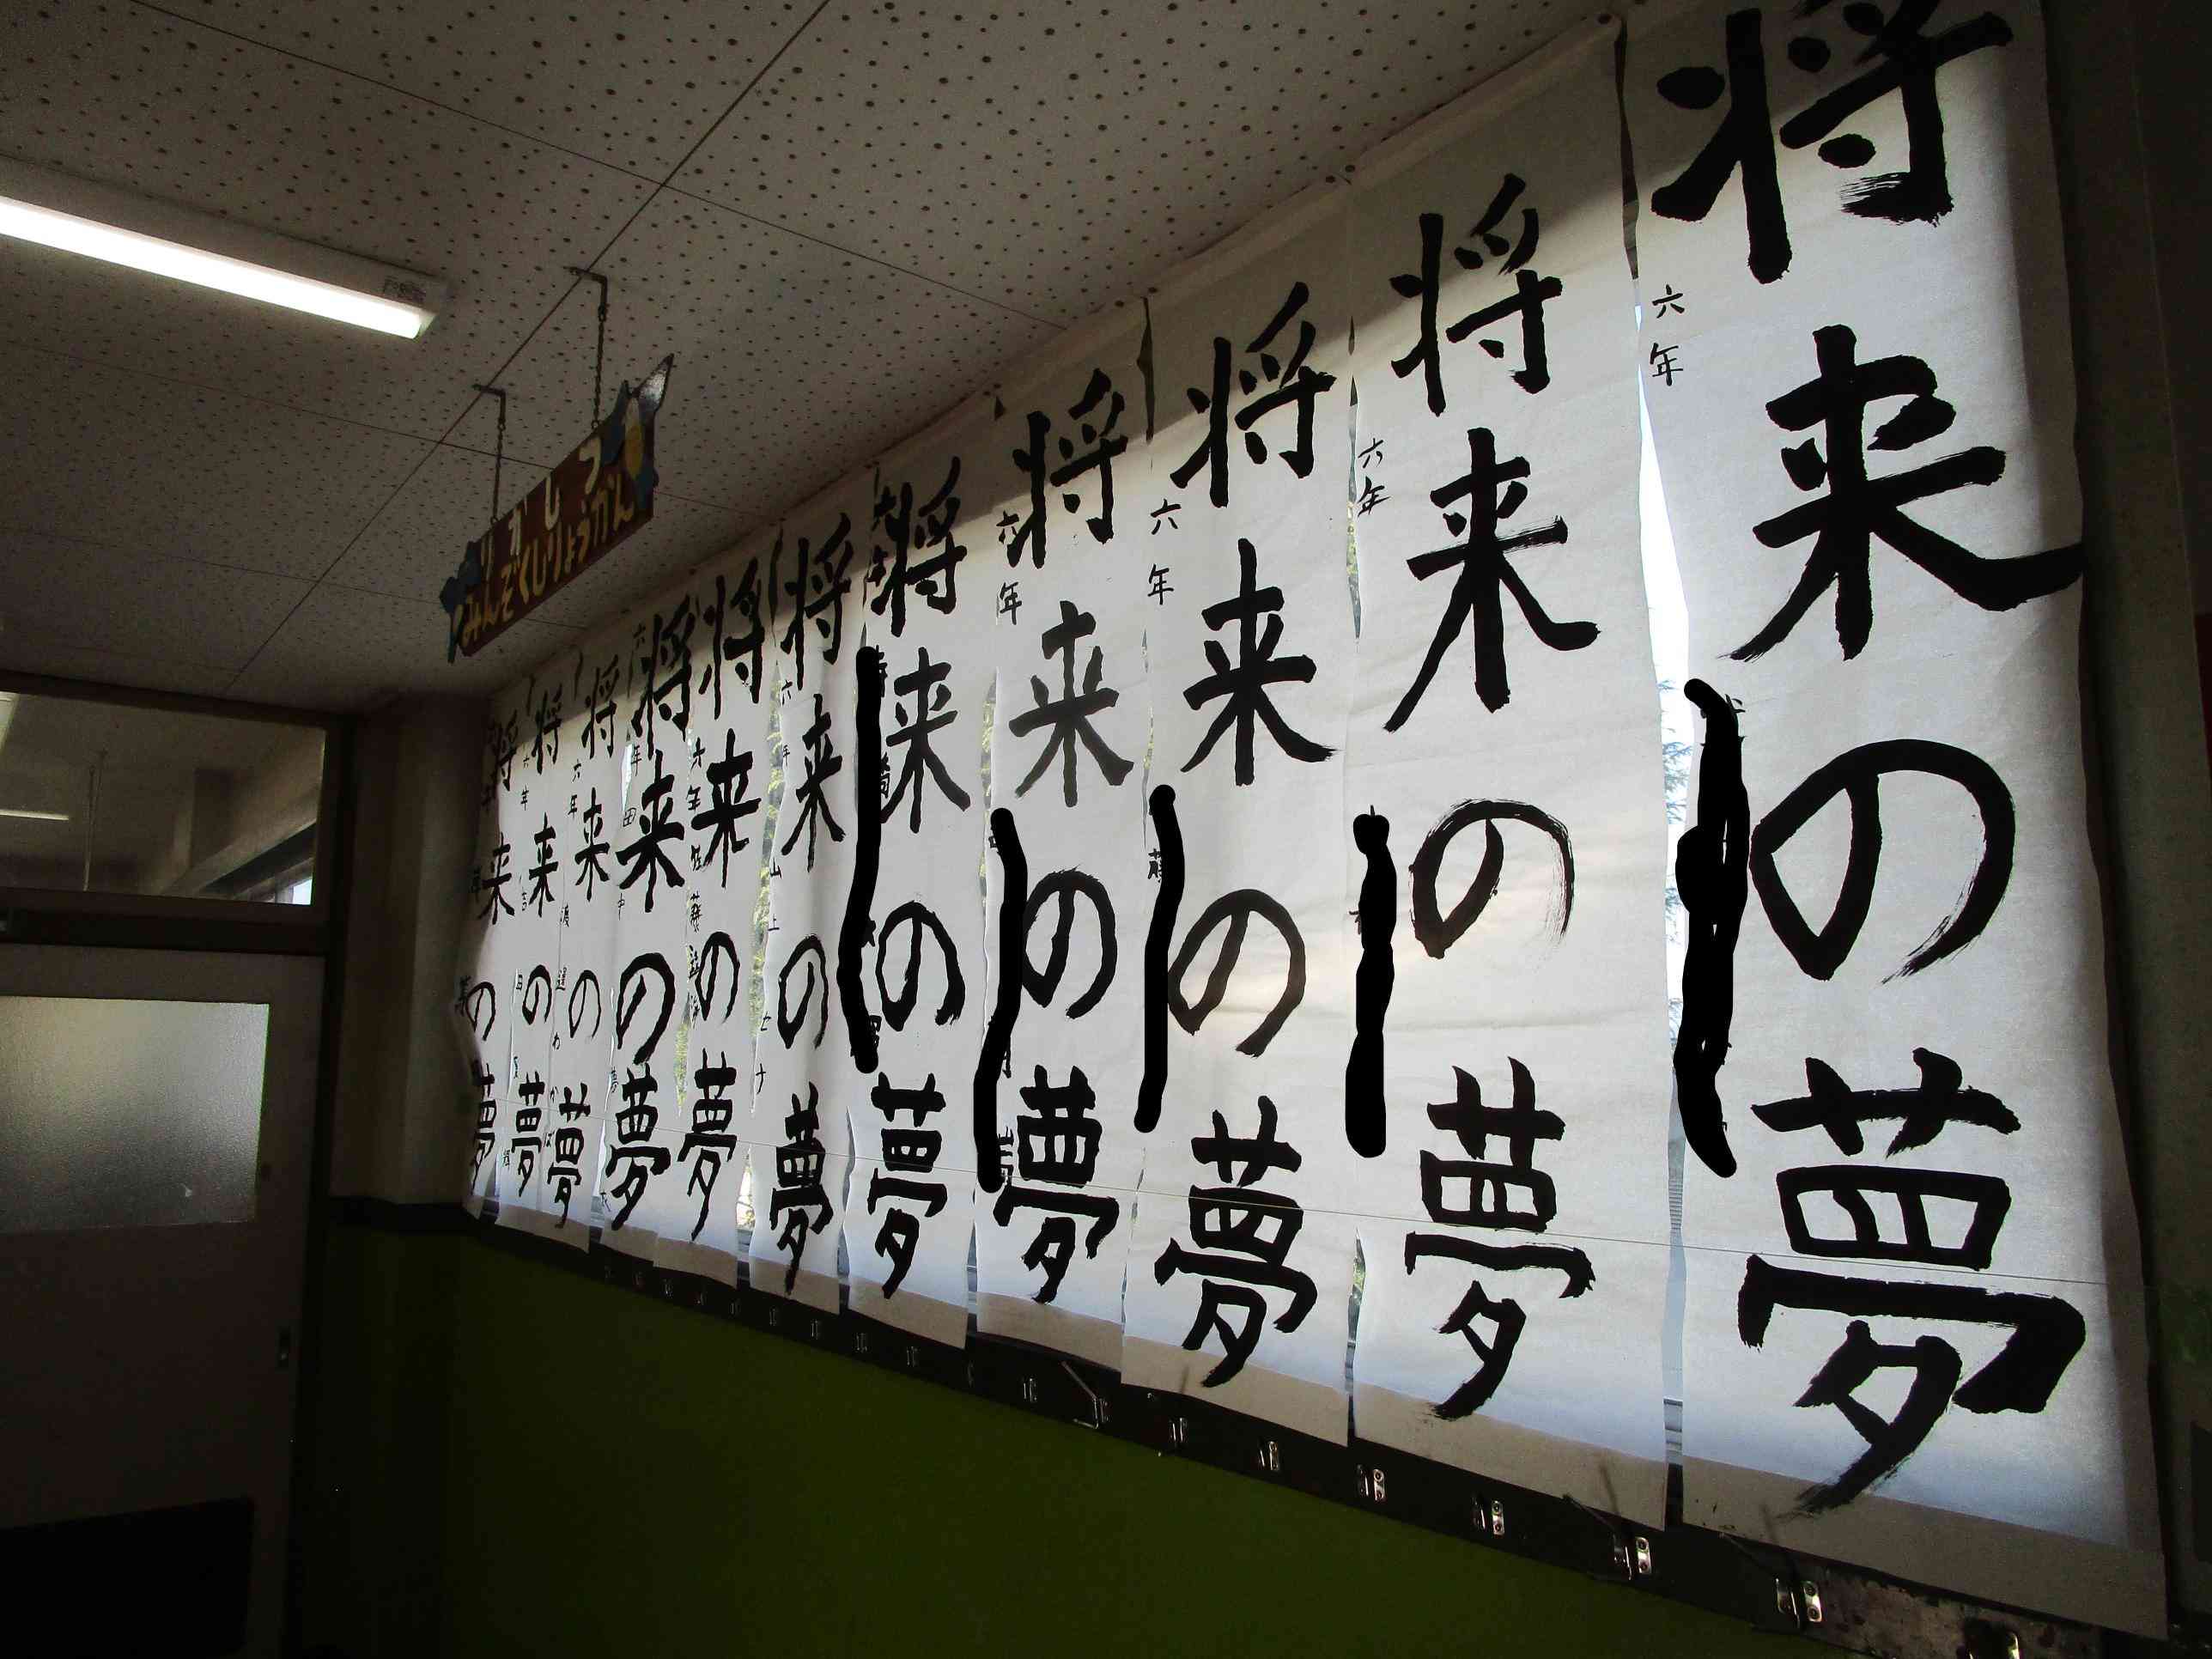 りかしつ
みんぞくしりょうかん
将来の夢
六年
将来の夢
六年
将来の夢
六年
将来の夢
六年
将来の夢
将来の夢
六年
山上
将来の夢
六年
佐藤
将来の夢
六年
田中
将来の夢
六年
将来の夢
六年
吉田
将来の夢